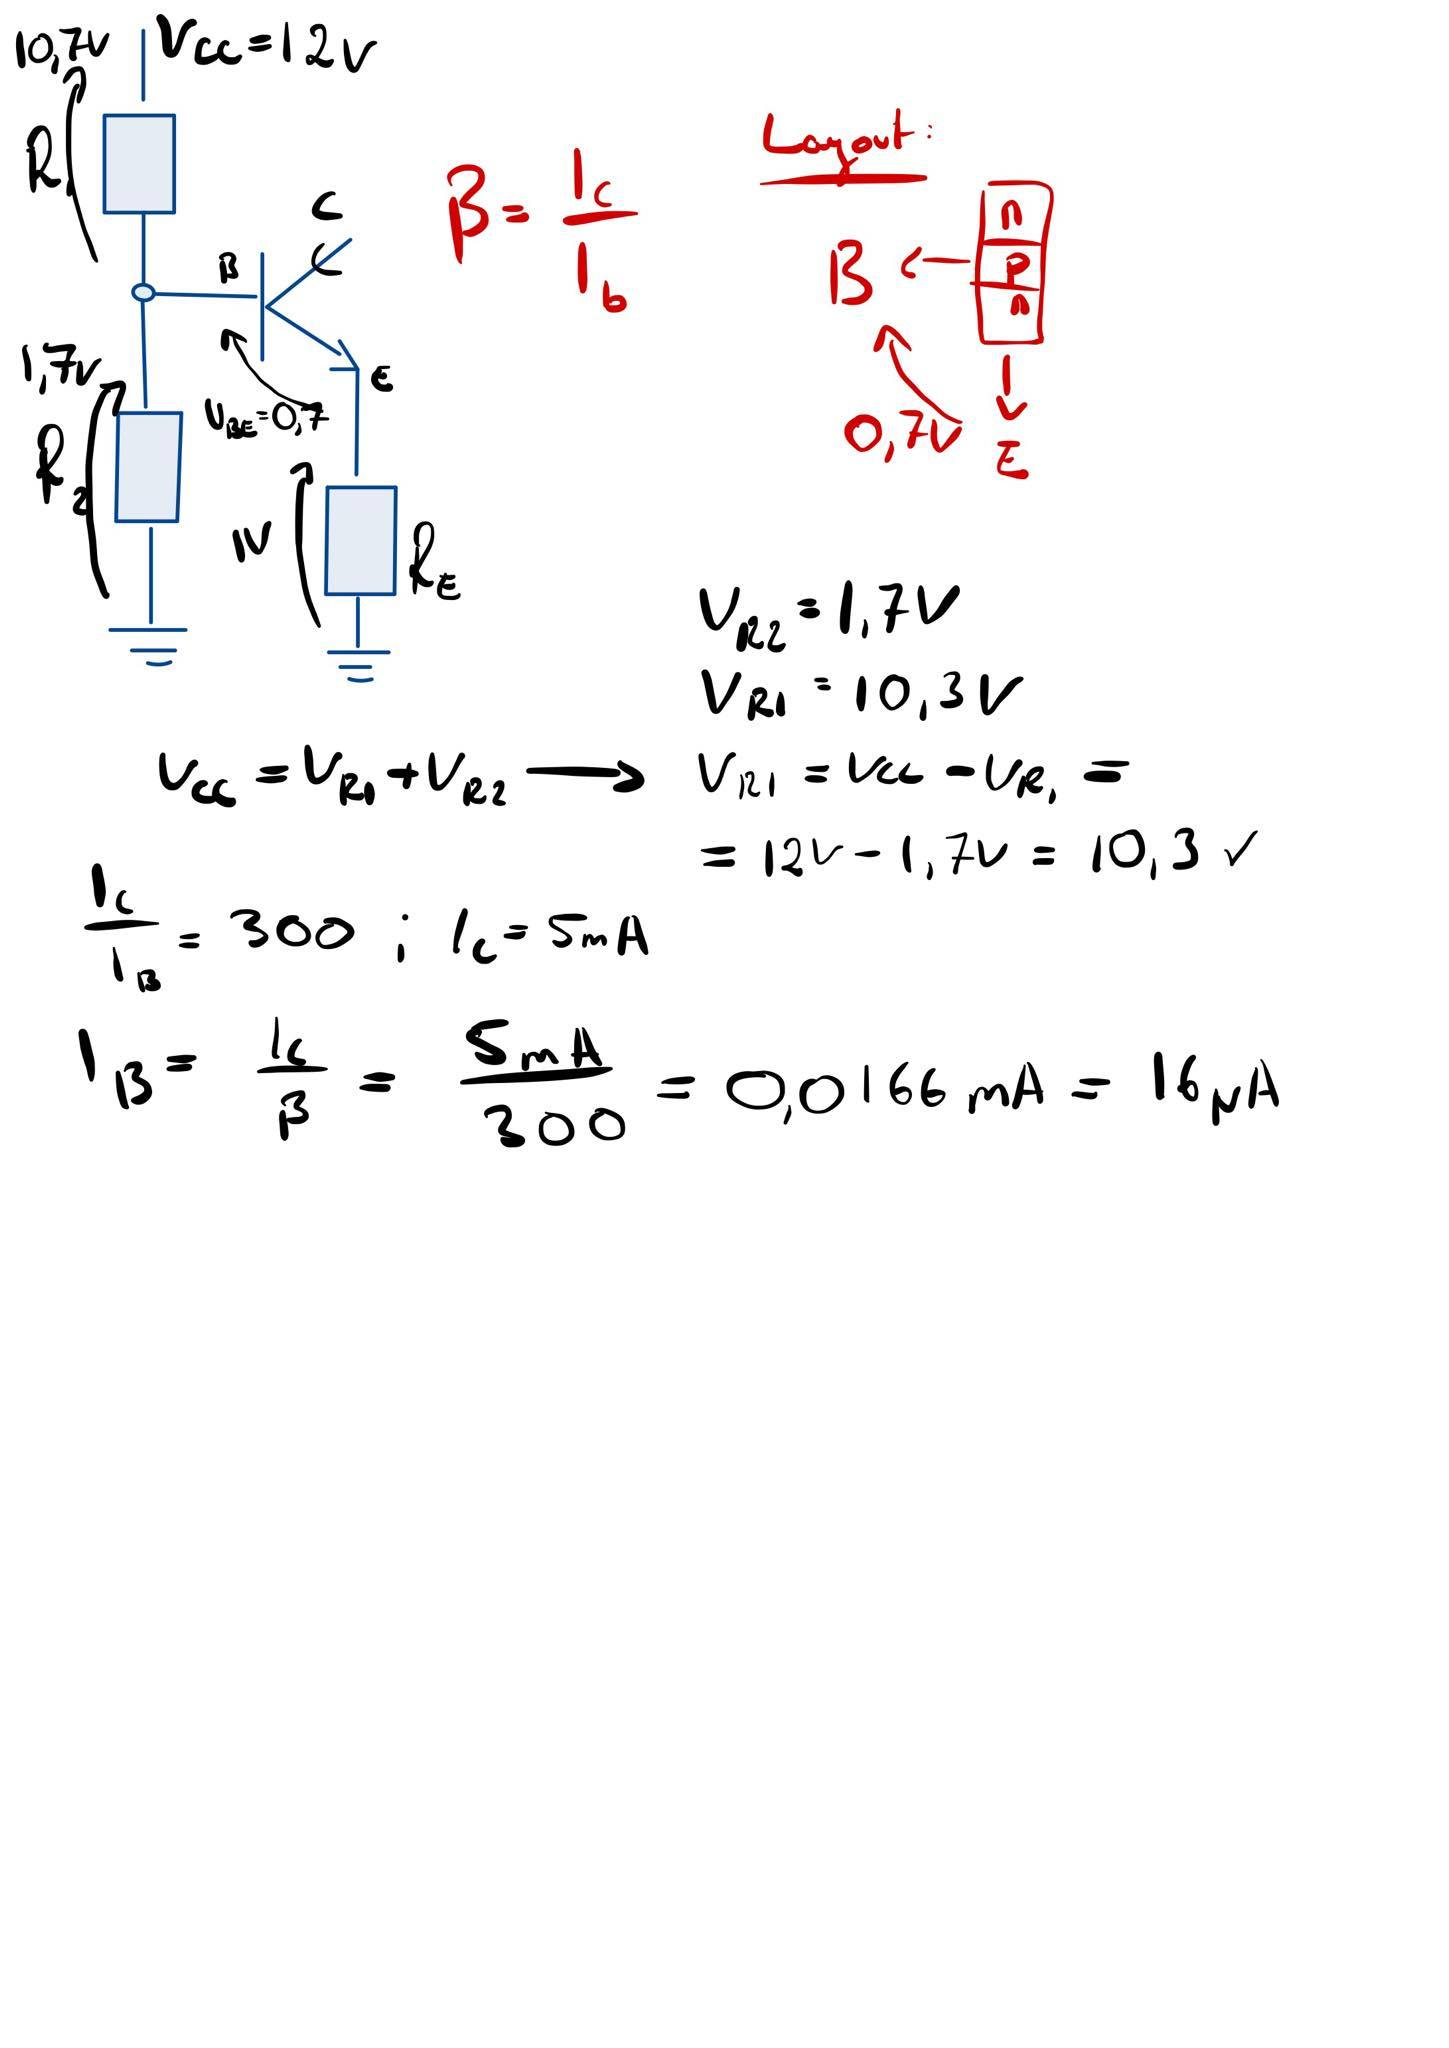 10,7V
Vcc = 12V
R1
C
C
B
VBE = 0,7
E
1,7V
R2
1V
RE
β = Ic / Ib
Layout:
n
p
n
B
0,7V
E
VR2 = 1,7V
VR1 = 10,3V
Vcc = VR1 + VR2 → VR1 = Vcc - VR1 =
= 12V - 1,7V = 10,3 ✓
Ic / IB = 300 ; Ic = 5mA
IB = Ic / β = 5mA / 300 = 0,0166 mA = 16 μA